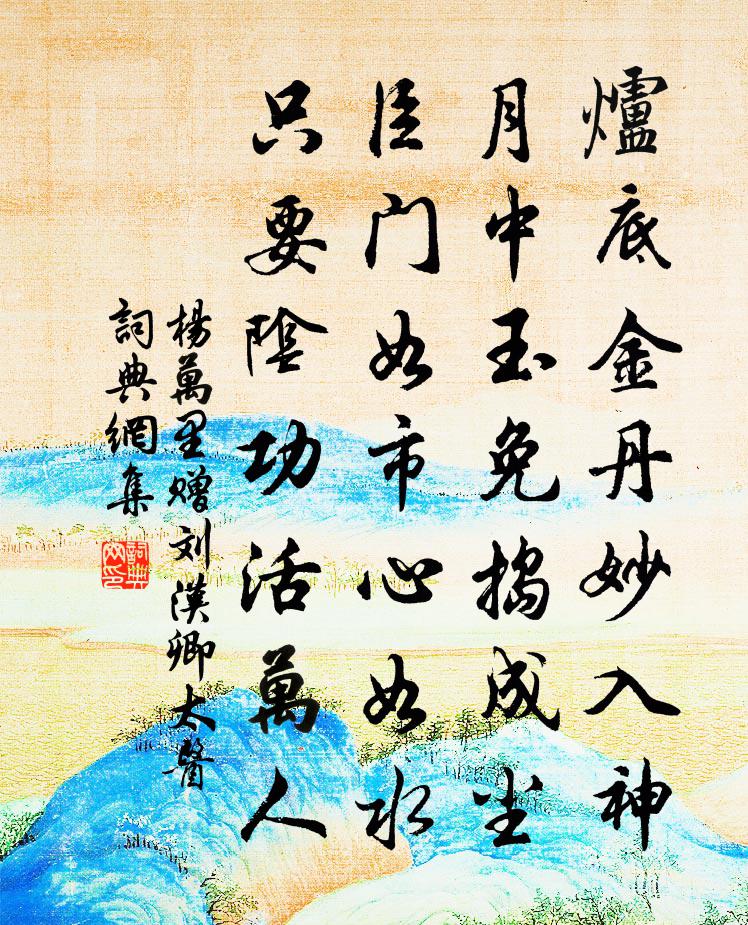 爐底金丹妙入神
月中玉兔搗成尘
臣门如市心如水
只要陰功活萬人
楊萬里赠刘漢卿太醫
詞典網集
詞典网印